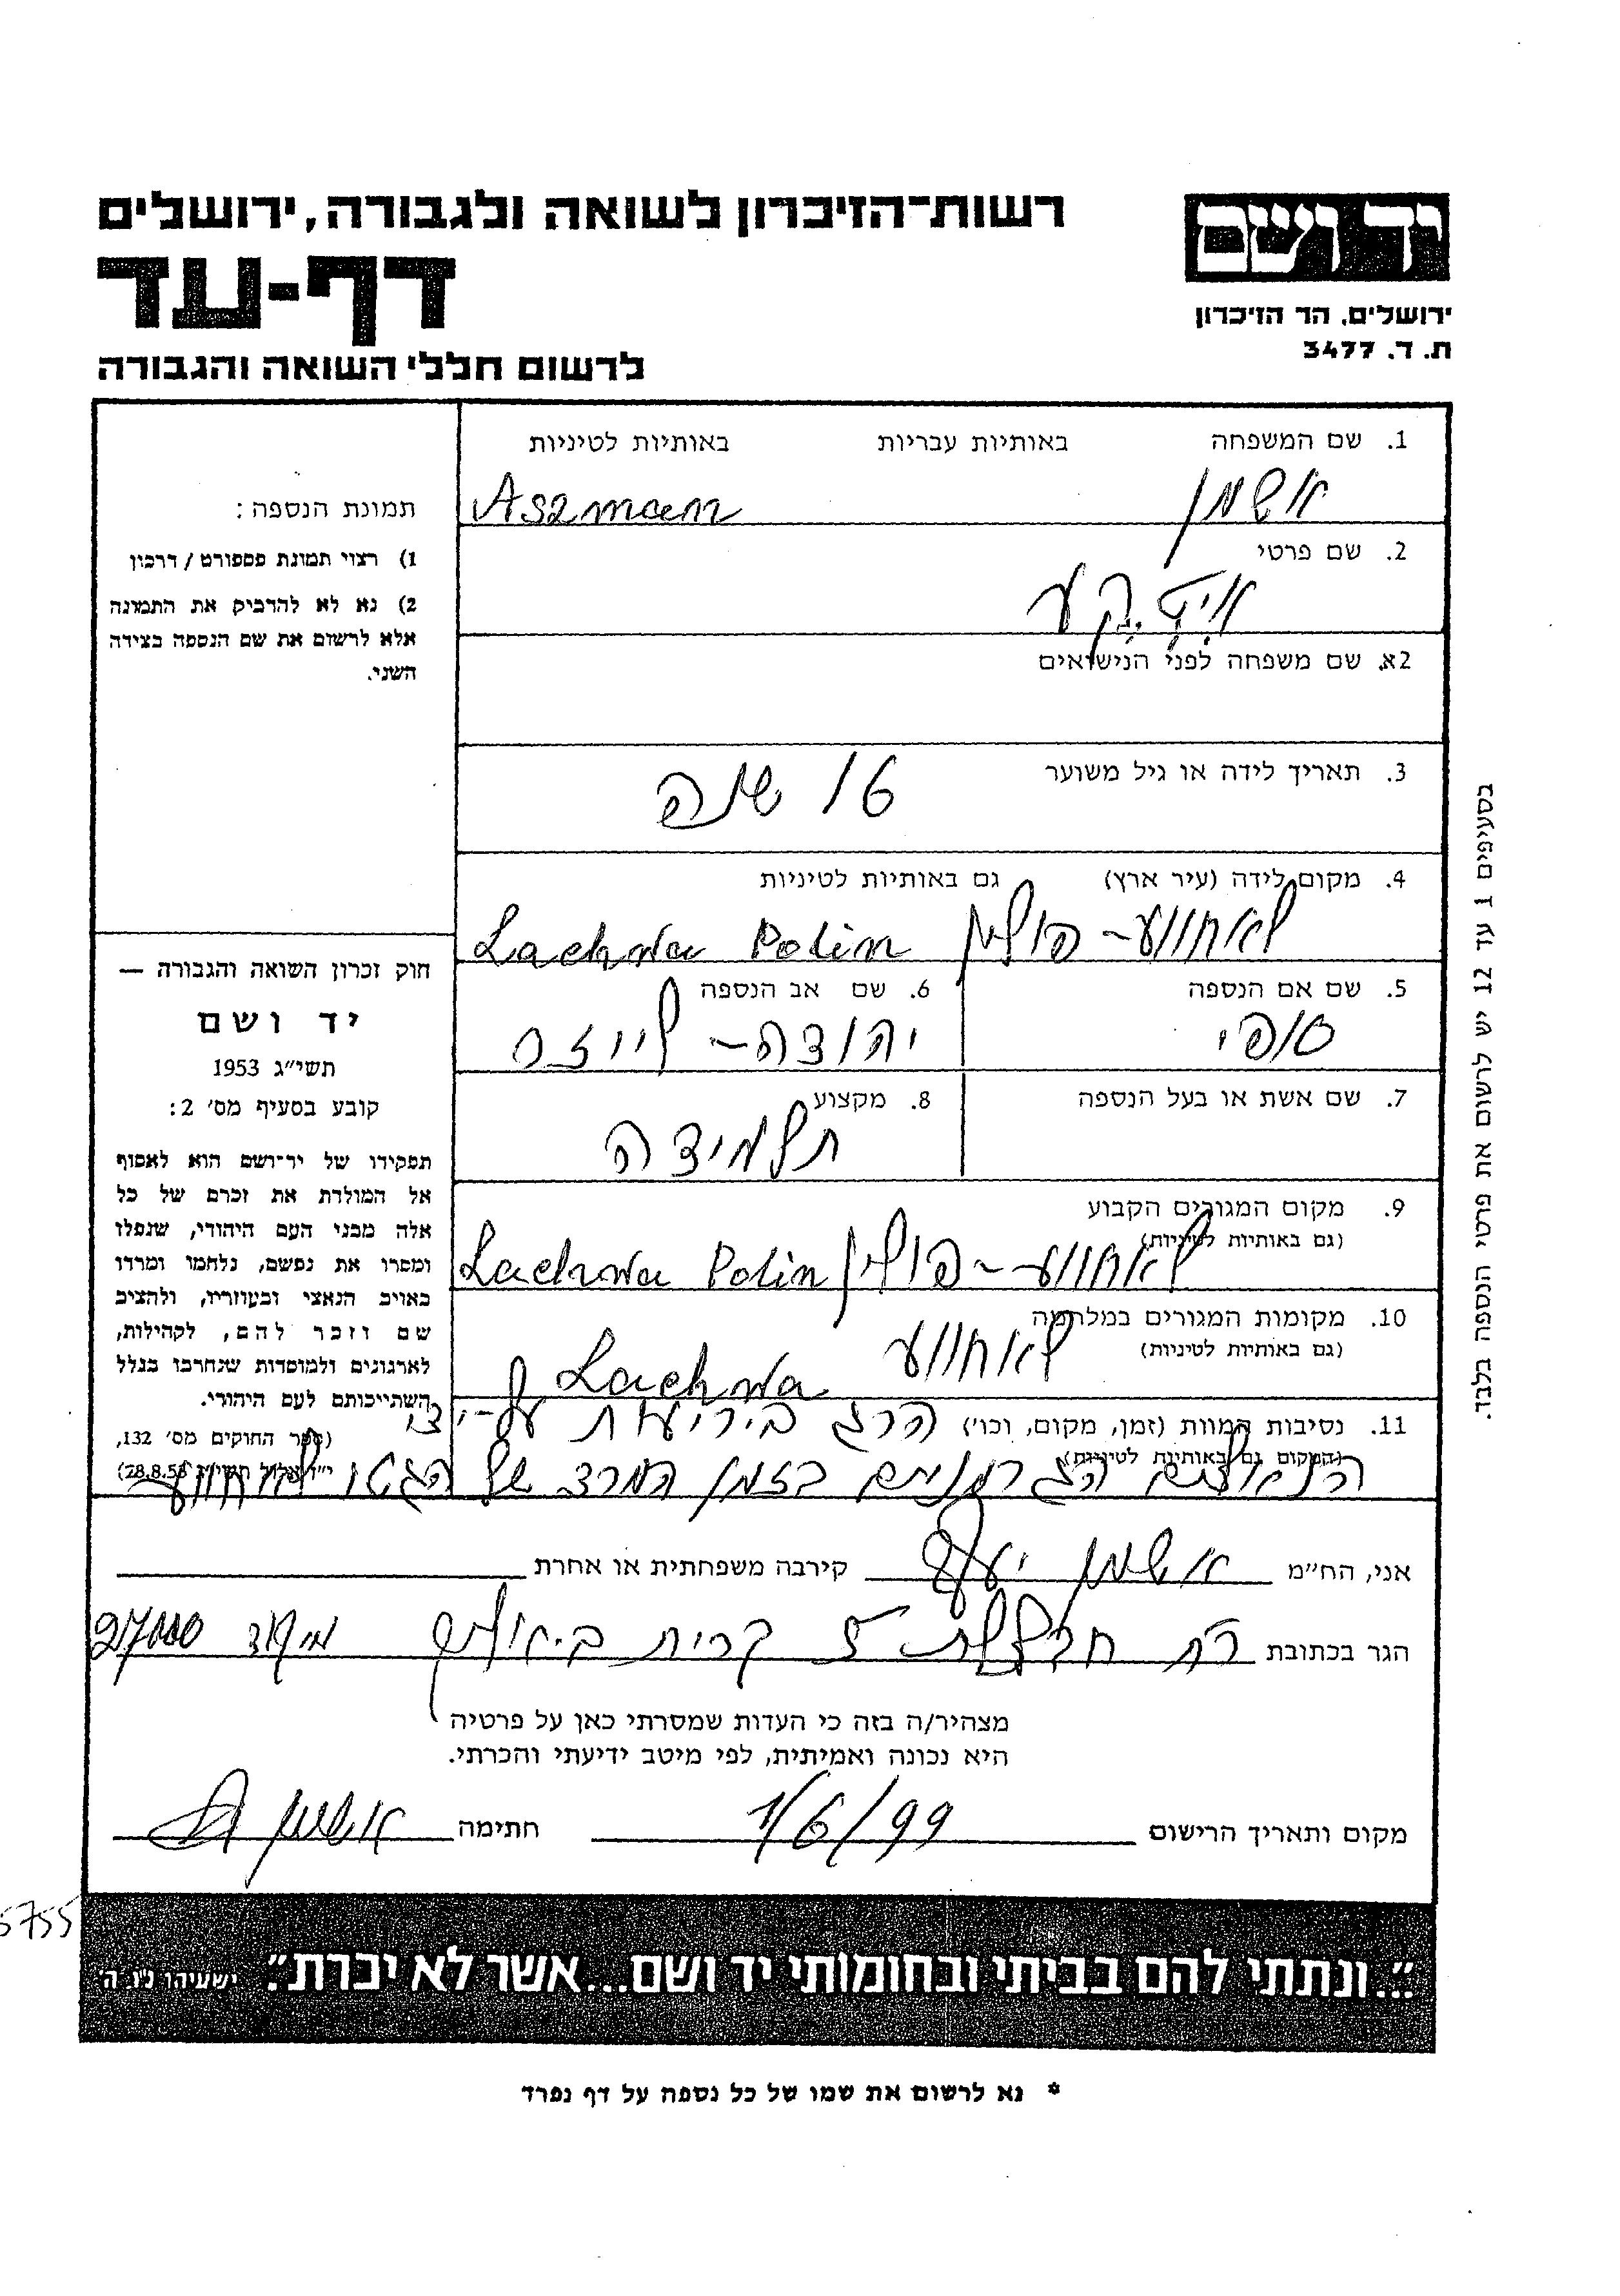 רשות-הזיכרון לשואה ולגבורה, ירושלים
דף-עד
לרשום חללי השואה והגבורה
יד ושם
ירושלים, הר הזיכרון
ת. ד. 3477
1. שם המשפחה באותיות עבריות באותיות לטיניות
אשמן Aszman
2. שם פרטי
2א. שם משפחה לפני הנישואים
3. תאריך לידה או גיל משוער
16 שנה
4. מקום לידה (עיר ארץ) גם באותיות לטיניות
לאחווע – פולין Lachwa Polin
5. שם אם הנספה
סופי
6. שם אב הנספה
יהודה – לייזר
7. שם אשת או בעל הנספה
8. מקצוע
תלמידה
9. מקום המגורים הקבוע
(גם באותיות לטיניות)
לאחווע – פולין Lachwa Polin
10. מקומות המגורים במלחמה
(גם באותיות לטיניות)
לאחווע Lachwa
11. נסיבות המוות (זמן, מקום, וכו') הרג ביריעות על-ידי
(המקום גם באותיות לטיניות)
הנאצים הגרמנים בזמן המרד של הגטו לאחווע
תמונת הנספה:
1) רצוי תמונת פספורט / דרכון
2) נא לא להדביק את התמונה
אלא לרשום את שם הנספה בצידה
השני.
חוק זכרון השואה והגבורה —
יד ושם
תשי"ג 1953
קובע בסעיף מס' 2:
תפקידו של יד-ושם הוא לאסוף
אל המולדת את זכרם של כל
אלה מבני העם היהודי, שנפלו
ומסרו את נפשם, נלחמו ומרדו
באויב הנאצי ובעוזריו, ולהציב
שם וזכר להם, לקהילות,
לארגונים ולמוסדות שנחרבו בגלל
השתייכותם לעם היהודי.
(ספר החוקים מס' 132,
י"ז אלול תשי"ג 28.8.53)
בסעיפים 1 עד 12 יש לרשום את פרטי הנספה בלבד.
אני, הח"מ אשמן יעקב קירבה משפחתית או אחרת
הגר בכתובת רח' חבצלת 5 קרית ביאליק מיקוד 27000
מצהיר/ה בזה כי העדות שמסרתי כאן על פרטיה
היא נכונה ואמיתית, לפי מיטב ידיעתי והכרתי.
מקום ותאריך הרישום 1/6/99 חתימה אשמן
5755
"...ונתתי להם בביתי ובחומותי יד ושם...אשר לא יכרת". ישעיהו נ"ו ה'
* נא לרשום את שמו של כל נספה על דף נפרד